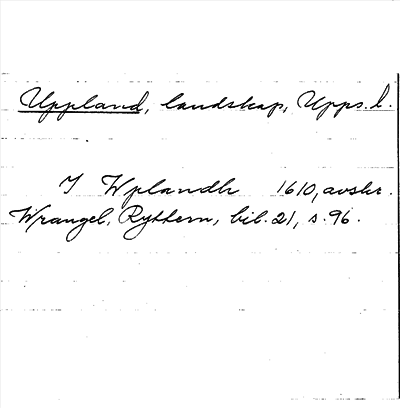 Uppland, landskap, Upps. l.
I Wplandh 1610, avskr.
Wrangel, Ryttern, bil. 21, s. 96.